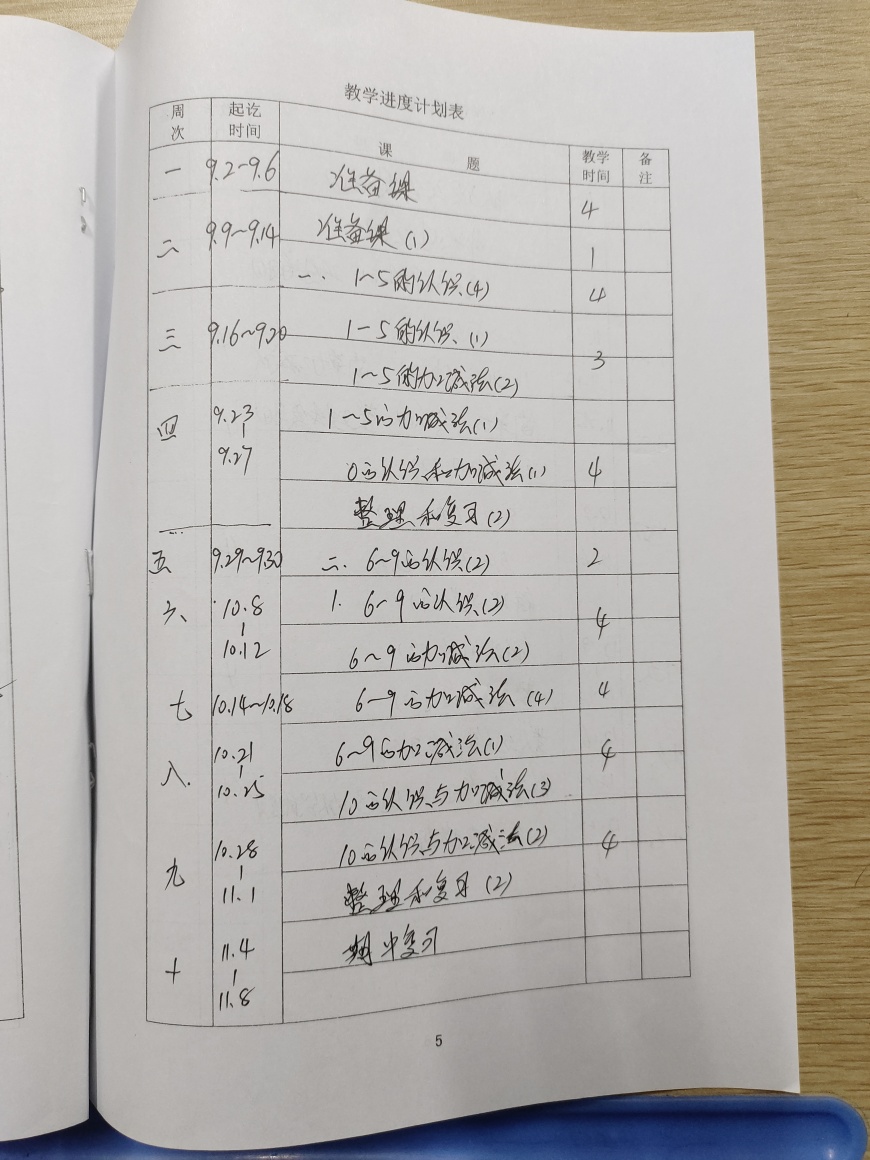 教学进度计划表
周次 起讫时间 课 题 教学时间 备注
一 9.2~9.6 准备课 4
二 9.9~9.14 准备课(1) 1
一、 1~5的认识(4) 4
三 9.16~9.20 1-5的认识、(1) 3
1~5的加减法(2)
四 9.23-9.27 1~5的加减法(1)
0的认识和加减法(1) 4
整理和复习(2)
五 9.29~9.30 二、6~9的认识(2) 2
六、 10.8-10.12 1. 6-9的认识(2) 4
6~9的加减法(2)
七 10.14~10.18 6-9的加减法(4) 4
八. 10.21-10.25 6~9的加减法(1) 4
10的认识与加减法(3)
九 10.28-11.1 10的认识与加减法(2) 4
整理和复习(2)
十 11.4-11.8 期中复习
5